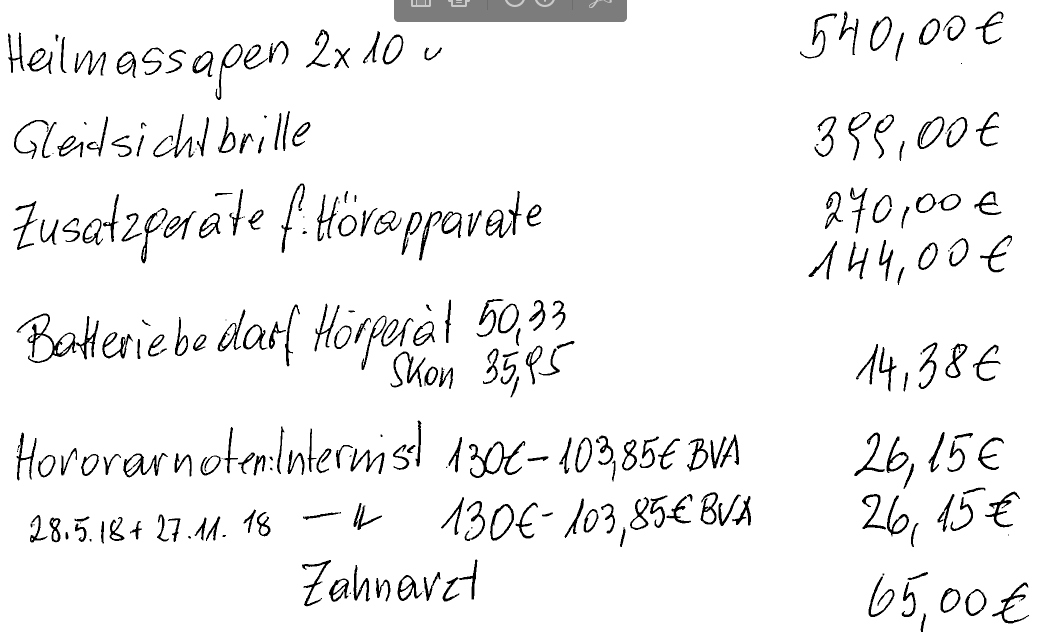 Heilmassagen 2x10 540,00€
Gleidsichtbrille 399,00€
Zusatzgeräte f. Hörapparate 270,00€
144,00€
Batteriebedarf Hörgerät 50,33
Skon 35,95 14,38€
Hororarnoten: Internist 130€ - 103,85€ BVA 26,15€
28.5.18 + 27.11.18 — " 130€ - 103,85€ BVA 26,15€
Zahnarzt 65,00€